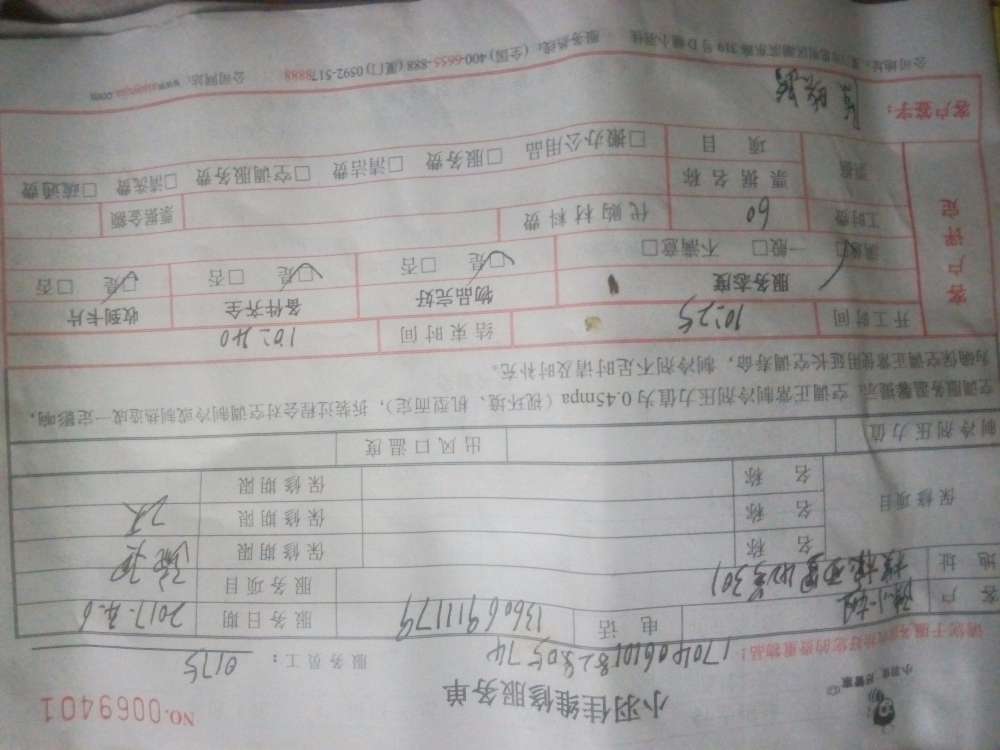 小羽佳维修服务单
NO.0069401
小羽佳，好管家
服务员工：0175
请您于服务前收拾好您的贵重物品！
客户 电话 13606911179 服务日期 2017.4.6
地址 服务项目
保修项目
名称 保修期限
名称 保修期限
名称 保修期限
制冷剂压力值 出风口温度
空调服务温馨提示：空调正常制冷剂压力值为0.45mpa（视环境、机型而定），拆装过程会对空调制冷或制热造成一定影响，
为确保空调正常使用延长空调寿命，制冷剂不足时请及时补充。
开工时间 10:25 结束时间 10:40
客户评定
服务态度 物品完好 备件齐全 收到卡片
满意□ 一般□ 不满意□ □是 □否 □是 □否 □是 □否
工时费 60 代购材料费 票据金额
票据 票据名称
项目 □搬办公用品 □服务费 □清洁费 □空调服务费 □清洗费 □疏通费
客户签字：
服务热线：（全国）400-6655-888（厦门）0592-5178888 公司网站：